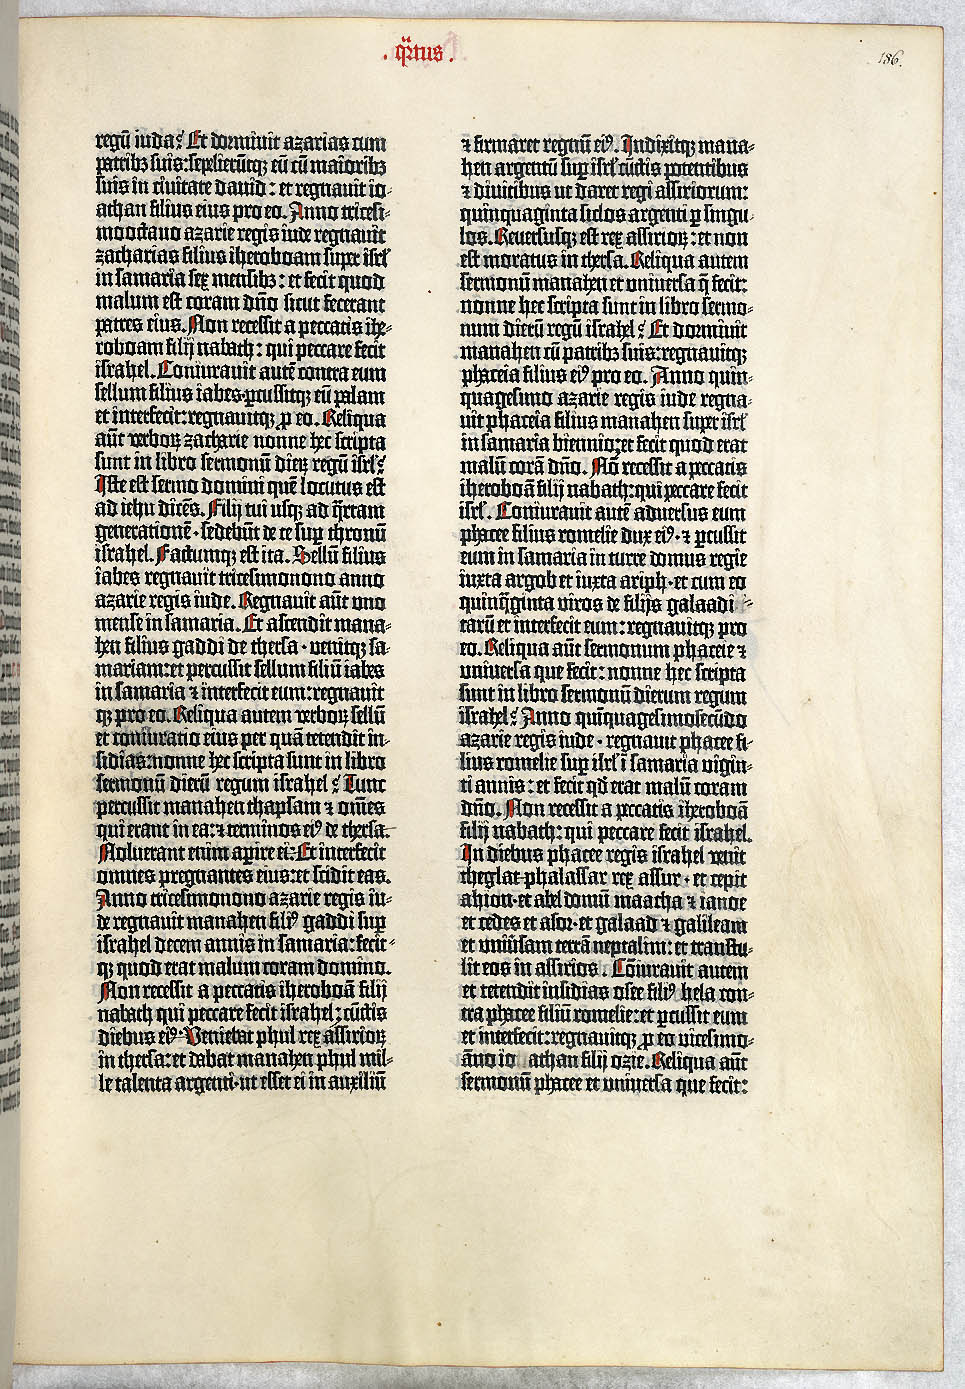 . q̈rtus .
186.
regū iudaꝫ Et dormiuit azarias cum
patribꝫ suis:sepelierūtqꝫ eū cū maioribꝫ
suis in ciuitate dauid: et regnauit io-
athan filius eius pro eo. Anno tricesi-
mooctauo azarie regis iude regnauit
zacharias filius iheroboam super isrl'
in samaria sex mensibꝫ: et fecit quod
malum est coram dño sicut fecerant
patres eius. Non recessit a peccatis ihe-
roboam filij nabath: qui peccare fecit
israhel. Coniurauit autē contra eum
sellum filius iabes·ꝑcussitqꝫ eū palam
et interfecit: regnauitqꝫ ꝓ eo. Reliqua
aūt verboꝝ zacharie nonne hec scripta
sunt in libro sermonū dieꝝ regū isrl'ꝫ
Iste est sermo domini quē locutus est
ad iehu dicēs. Filij tui usqꝫ ad q̈rtam
generationē·sedebūt de te suꝑ thronū
israhel. Factumqꝫ est ita. Sellū filius
iabes regnauit tricesimonono anno
azarie regis iude. Regnauit aūt uno
mense in samaria. Et ascendit mana-
hen filius gaddi de thersa·venitqꝫ sa-
mariam:et percussit sellum filiū iabes
in samaria ⁊ interfecit eum:regnauit
qꝫ pro eo. Reliqua autem verboꝝ sellū
et coniuratio eius per quā tetendit in-
sidias:nonne hec scripta sunt in libro
sermonū dierū regum israhelꝫ Tunc
percussit manahen thapsam ⁊ om̄es
qui erant in ea:⁊ terminos eiꝰ de thersa.
Noluerant enim aꝑire ei: Et interfecit
omnes pregnantes eius:et scidit eas.
Anno tricesimonono azarie regis iu-
de regnauit manahen filiꝰ gaddi suꝑ
israhel decem annis in samaria:fecit-
qꝫ quod erat malum coram domino.
Non recessit a peccatis iheroboā filij
nabath qui peccare fecit israhel:cūctis
diebus eiꝰ. Veniebat phul rex assirioꝝ
in thersa:et dabat manahen phul mil-
le talenta argenti·ut esset ei in auxiliū
⁊ firmaret regnū eiꝰ. Indixitqꝫ mana-
hen argentū suꝑ isrl' cūctis potentibus
⁊ diuitibus ut daret regi assiriorum:
quinquaginta siclos argenti ꝑ singu-
los. Reuersusqꝫ est rex assirioꝝ: et non
est moratus in thersa. Reliqua autem
sermonū manahen et uniuersa q̄ fecit:
nonne hec scripta sunt in libro sermo-
num dierū regū israhelꝫ Et dormiuit
manahen cū patribꝫ suis:regnauitqꝫ
phaceia filius eiꝰ pro eo. Anno quin-
quagesimo azarie regis iude regna-
uit phaceia filius manahen super isrl'
in samaria biennio:et fecit quod erat
malū corā dño. Nō recessit a peccatis
iheroboā filij nabath:qui peccare fecit
isrl'. Coniurauit autē aduersus eum
phacee filius romelie dux eiꝰ·⁊ ꝑcussit
eum in samaria in turre domus regie
iuxta argob et iuxta ariph·et cum eo
quinq̈ginta viros de filijs galaadi-
tarū et interfecit eum:regnauitqꝫ pro
eo. Reliqua aūt sermonum phaceie ⁊
uniuersa que fecit: nonne hec scripta
sunt in libro sermonū dierum regum
israhelꝫ Anno quinquagesimosecūdo
azarie regis iude·regnauit phacee fi-
lius romelie suꝑ isrl' ī samaria vigin-
ti annis: et fecit qď erat malū coram
dño. Non recessit a peccatis iheroboā
filij nabath: qui peccare fecit israhel.
In diebus phacee regis israhel venit
theglat-phalassar rex assur·et cepit
ahion·et abel domū maacha ⁊ ianoe
et cedes et asor·et galaad ⁊ galileam
et uniūsam terrā neptalim: et transtu-
lit eos in assirios. Cōiurauit autem
et tetendit insidias osee filiꝰ hela con-
tra phacee filiū romelie:et ꝑcussit eum
et interfecit:regnauitqꝫ ꝓ eo vicesimo-
āno io athan filij ozie. Reliqua aūt
sermonū phacee et uniuersa que fecit: